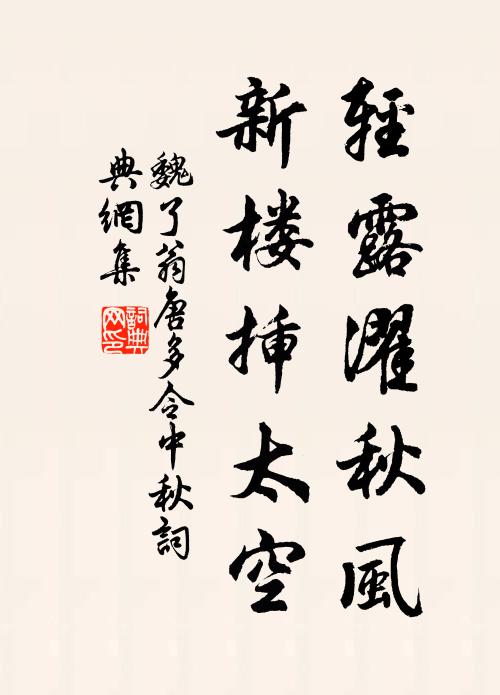 輕露濯秋風
新楼揷太空
魏了翁唐多令中秋詞
典網集
詞典网印